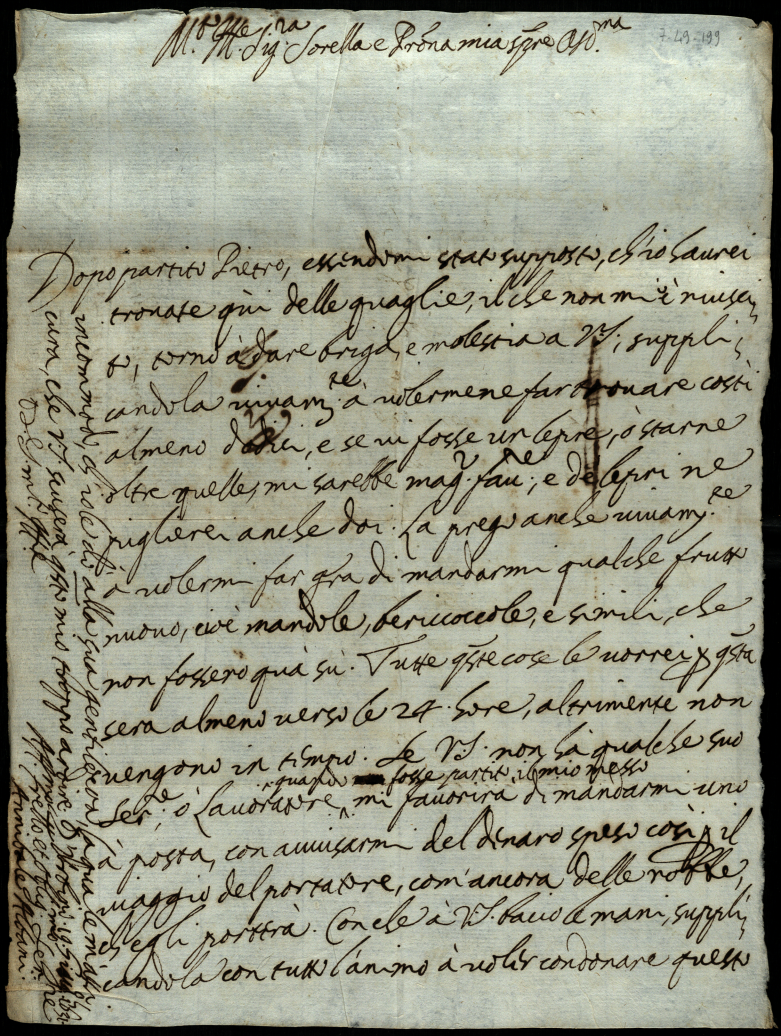 M.to Ill.re Sig.ra Sorella e Pr̃ona mia sp̃re Oss.ma
7-49-199
Dopo partito Pietro, essendomi stato supposto, ch'io haurei
trouate qui delle quaglie, il che non mi è riusci-
to, torno à dare briga, e molestia a VS, suppli-
candola viuam.te à volermene far trouare costì
almeno dodici, e se vi fosse un lepre, ò starne
oltre quelle, mi sarebbe mag.r fau.re; e de lepri ne
piglierei anche doi. La prego anche viuam.te
à volermi far gr̃a di mandarmi qualche frutto
nuouo, cioè mandole, bericoccole, e simili, che
non fossero quà sù. Tutte q̃ste cose le vorrei p q̃sta
sera almeno verso le 24 hore, altrimente non
vengono in tempo. Se VS. non hà qualche suo
quando fosse partito il mio messo
Ser.re ò Lauoratore, mi fauorirà di mandarmi uno
à posta, con auuisarmi del dinaro speso così p il
viaggio del portatore, com'ancora delle robbe,
ch'egli porterà. Con che à VS. bacio le mani, suppli-
candola con tutto l'animo à voler condonare questo
incommodo, ch'io le dò alla sua gentilezza, la qual e m'assi-
cura, che VS scuserà q̃sto mio troppo ardire.
Di VS. m.to Ill.re
Annibale Albani